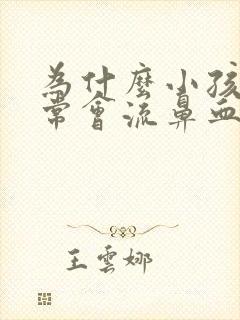 為什麼小孩
常會流鼻血
王雲娜